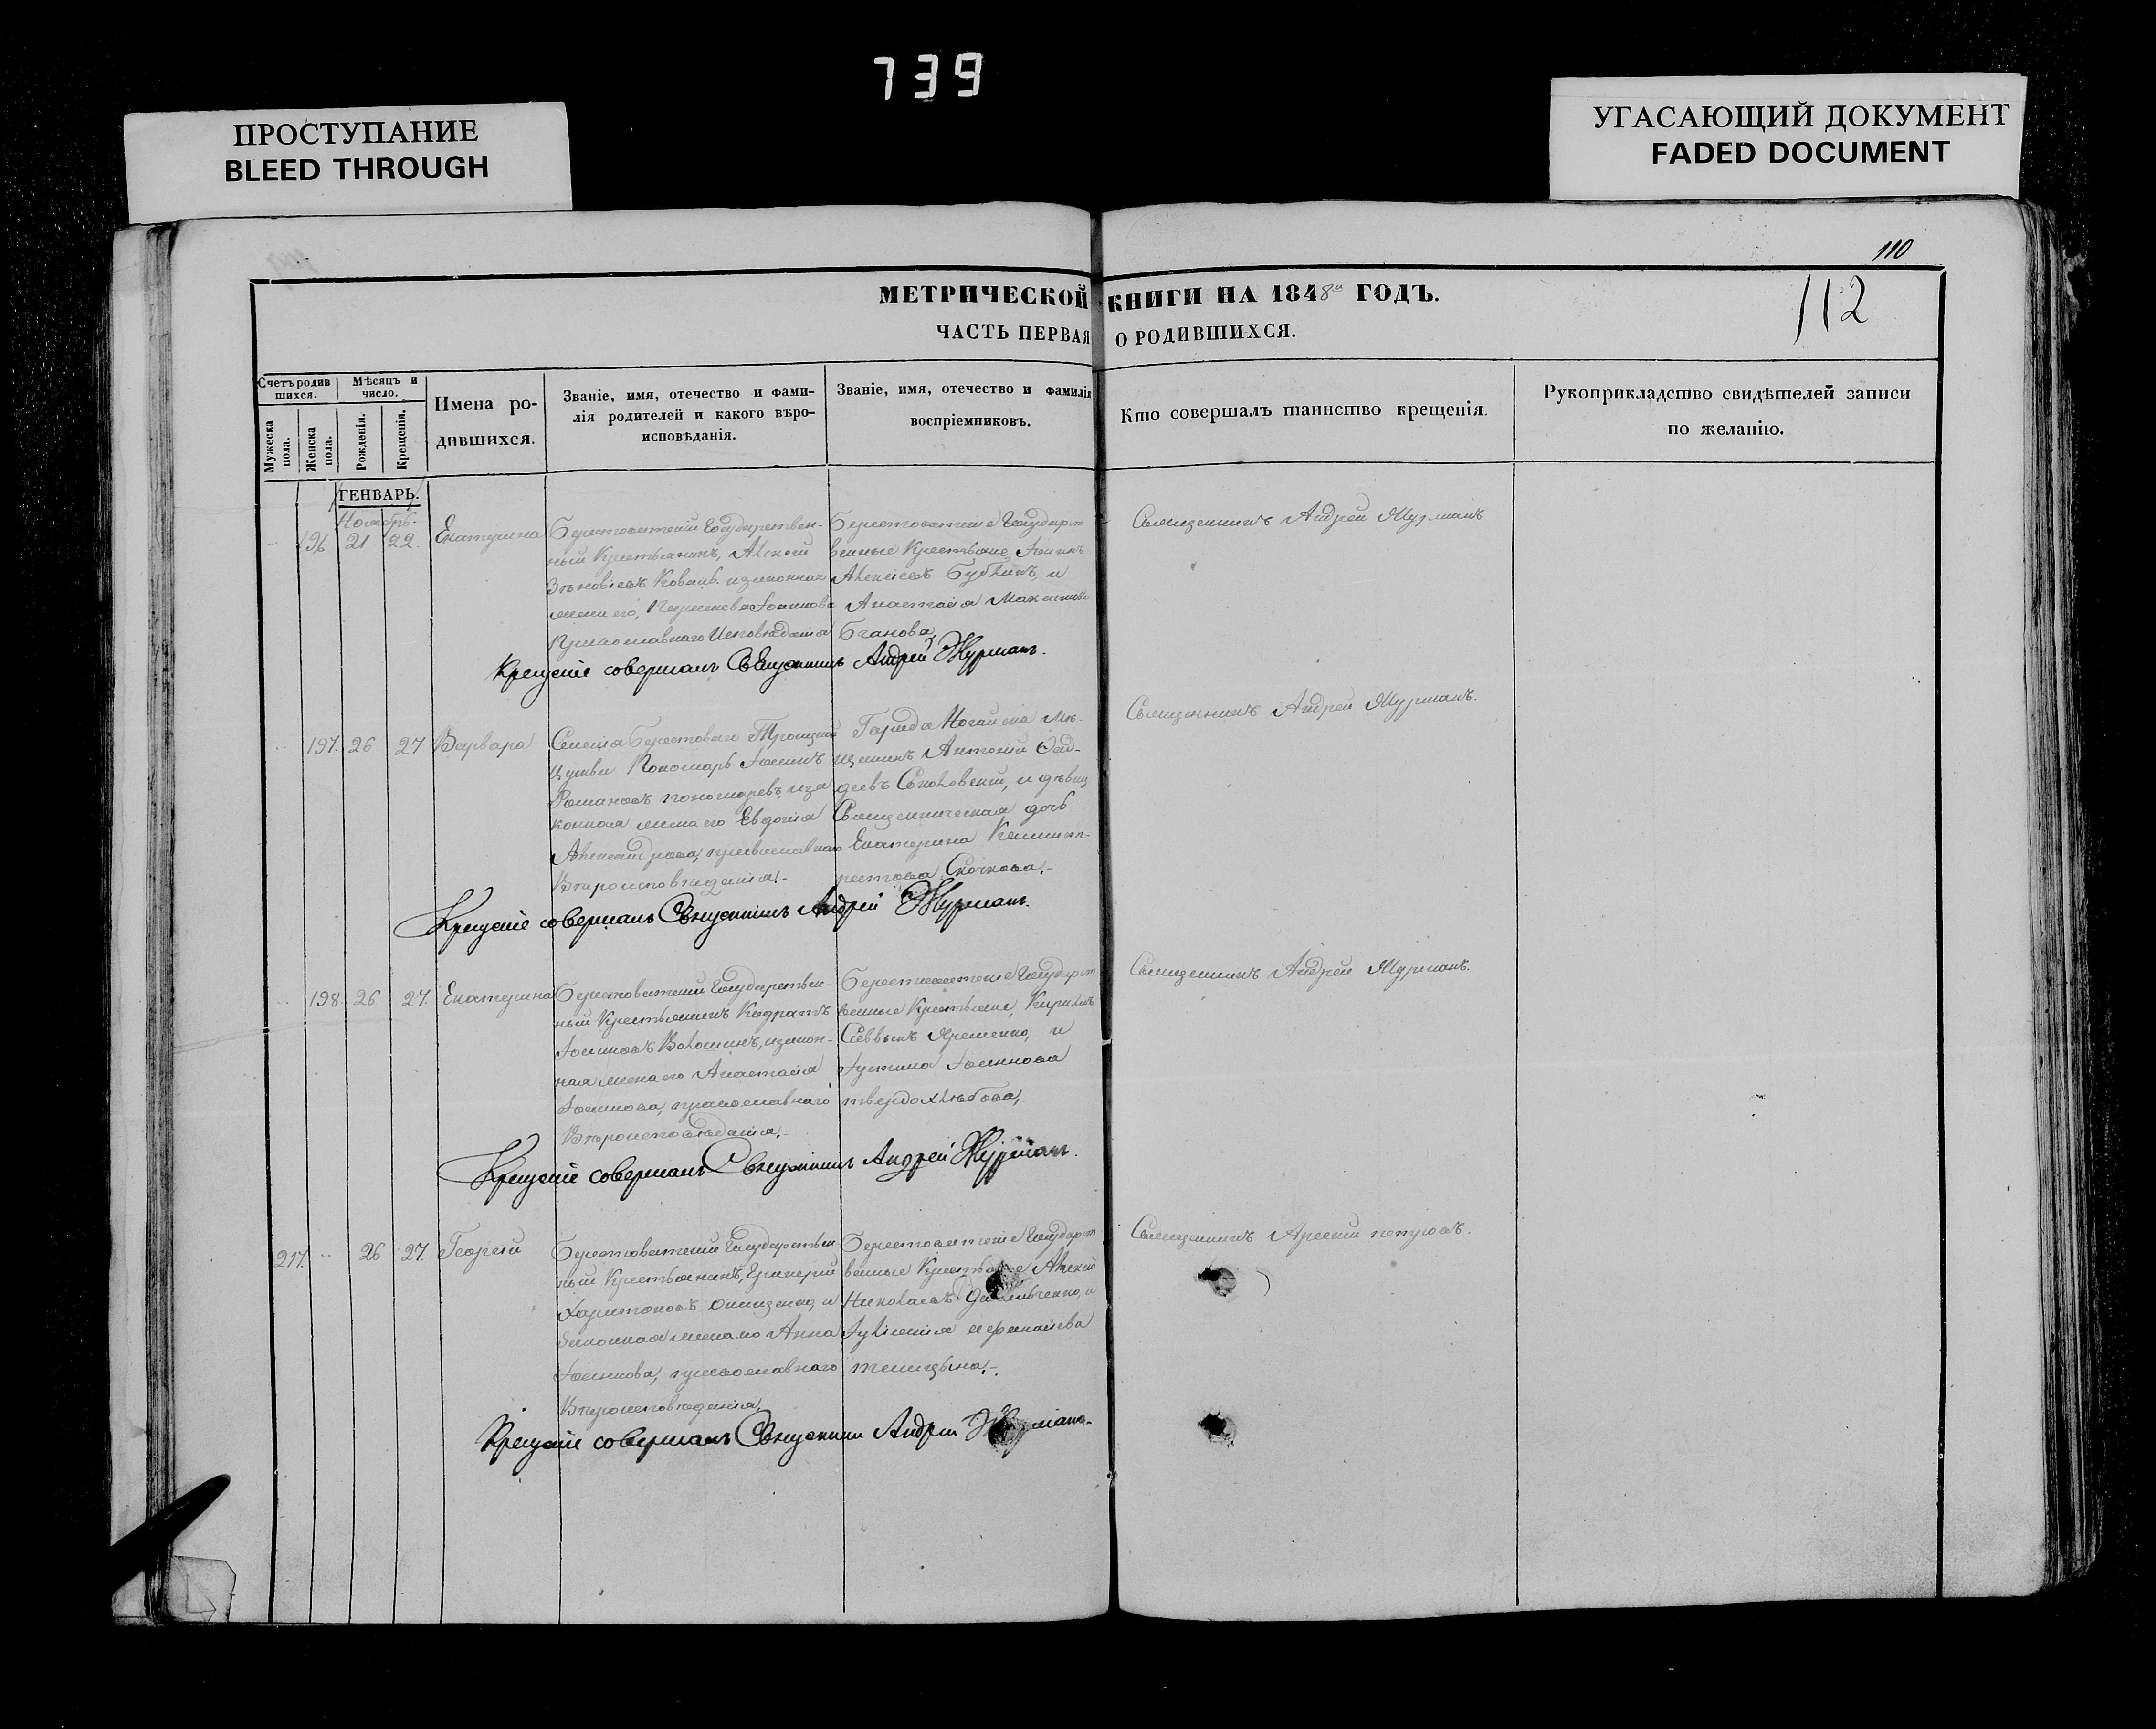 739
ПРОСТУПАНИЕ
BLEED THROUGH
УГАСАЮЩИЙ ДОКУМЕНТ
FADED DOCUMENT
110
112
МЕТРИЧЕСКОЙ КНИГИ НА 1848 ГОДЪ.
ЧАСТЬ ПЕРВАЯ О РОДИВШИХСЯ.
Счетъ родив
шихся.
Мѣсяцъ и
число.
Мужеска
пола.
Женска
пола.
Рожденія.
Крещенія.
Имена ро-
дившихся.
Званіе, имя, отечество и фами-
лія родителей и какого вѣро-
исповѣданія.
Званіе, имя, отечество и фамилія
воспріемниковъ.
Кто совершалъ таинство крещенія.
Рукоприкладство свидѣтелей записи
по желанію.
ГЕНВАРЬ.
Ноябрь.
196 21 22 Екатерина
Берестоватский Государствен-
ный Крестьянинъ, Алексей
Ковань законная
жена его, Иоаннова
Православнаго Исповедания
Берестоватские Государст
венные Крестьяне, Иоаннъ
Алексиевъ и
Анастасия
Священникъ Андрей Журманъ
Крещеніе совершалъ Священникъ Андрей Журманъ.
197. 26 27 Варвара
Селения Берестоваго Троицкой
Церкви Пономарь Иоаннъ
Романовъ пономаревъ, иза
конная жена его Евдокия
Александрова, православнаго
Вероисповедания.-
Города Ногайска Мѣ-
щанинъ Антоний Фад-
деевъ Соколовский, и девица
Священническая дочь
Екатерина
Скочкова.-
Священникъ Андрей Журманъ.
Крещеніе совершалъ Священникъ Андрей Журманъ.
198. 26 27. Екатерина
Берестоватский Государствен-
ный Крестьянинъ Кодратъ
Иоанновъ Волошинъ, изакон-
ная жена его Анастасия
Иоаннова, православнаго
Вероисповедания.-
Берестоватские Государст
венные Крестьяне, Кириллъ
Саввинъ Яременко, и
Иустина Иоаннова
твердохлебова,
Священникъ Андрей Журманъ.
Крещеніе совершалъ Священникъ Андрей Журманъ.
217. 26 27. Георгий
Берестоватский Государствен
ный Крестьянинъ, Григорий
Харитоновъ Онищенко, и
Законная жена его Анна
Иоаннова, православнаго
Вероисповедания,
Берестоватские Государст
венные Крестьяне Алексей
Николаевъ
Иулиания
Священникъ Арсений петровъ.
Крещеніе совершалъ Священникъ Андрей Журманъ.